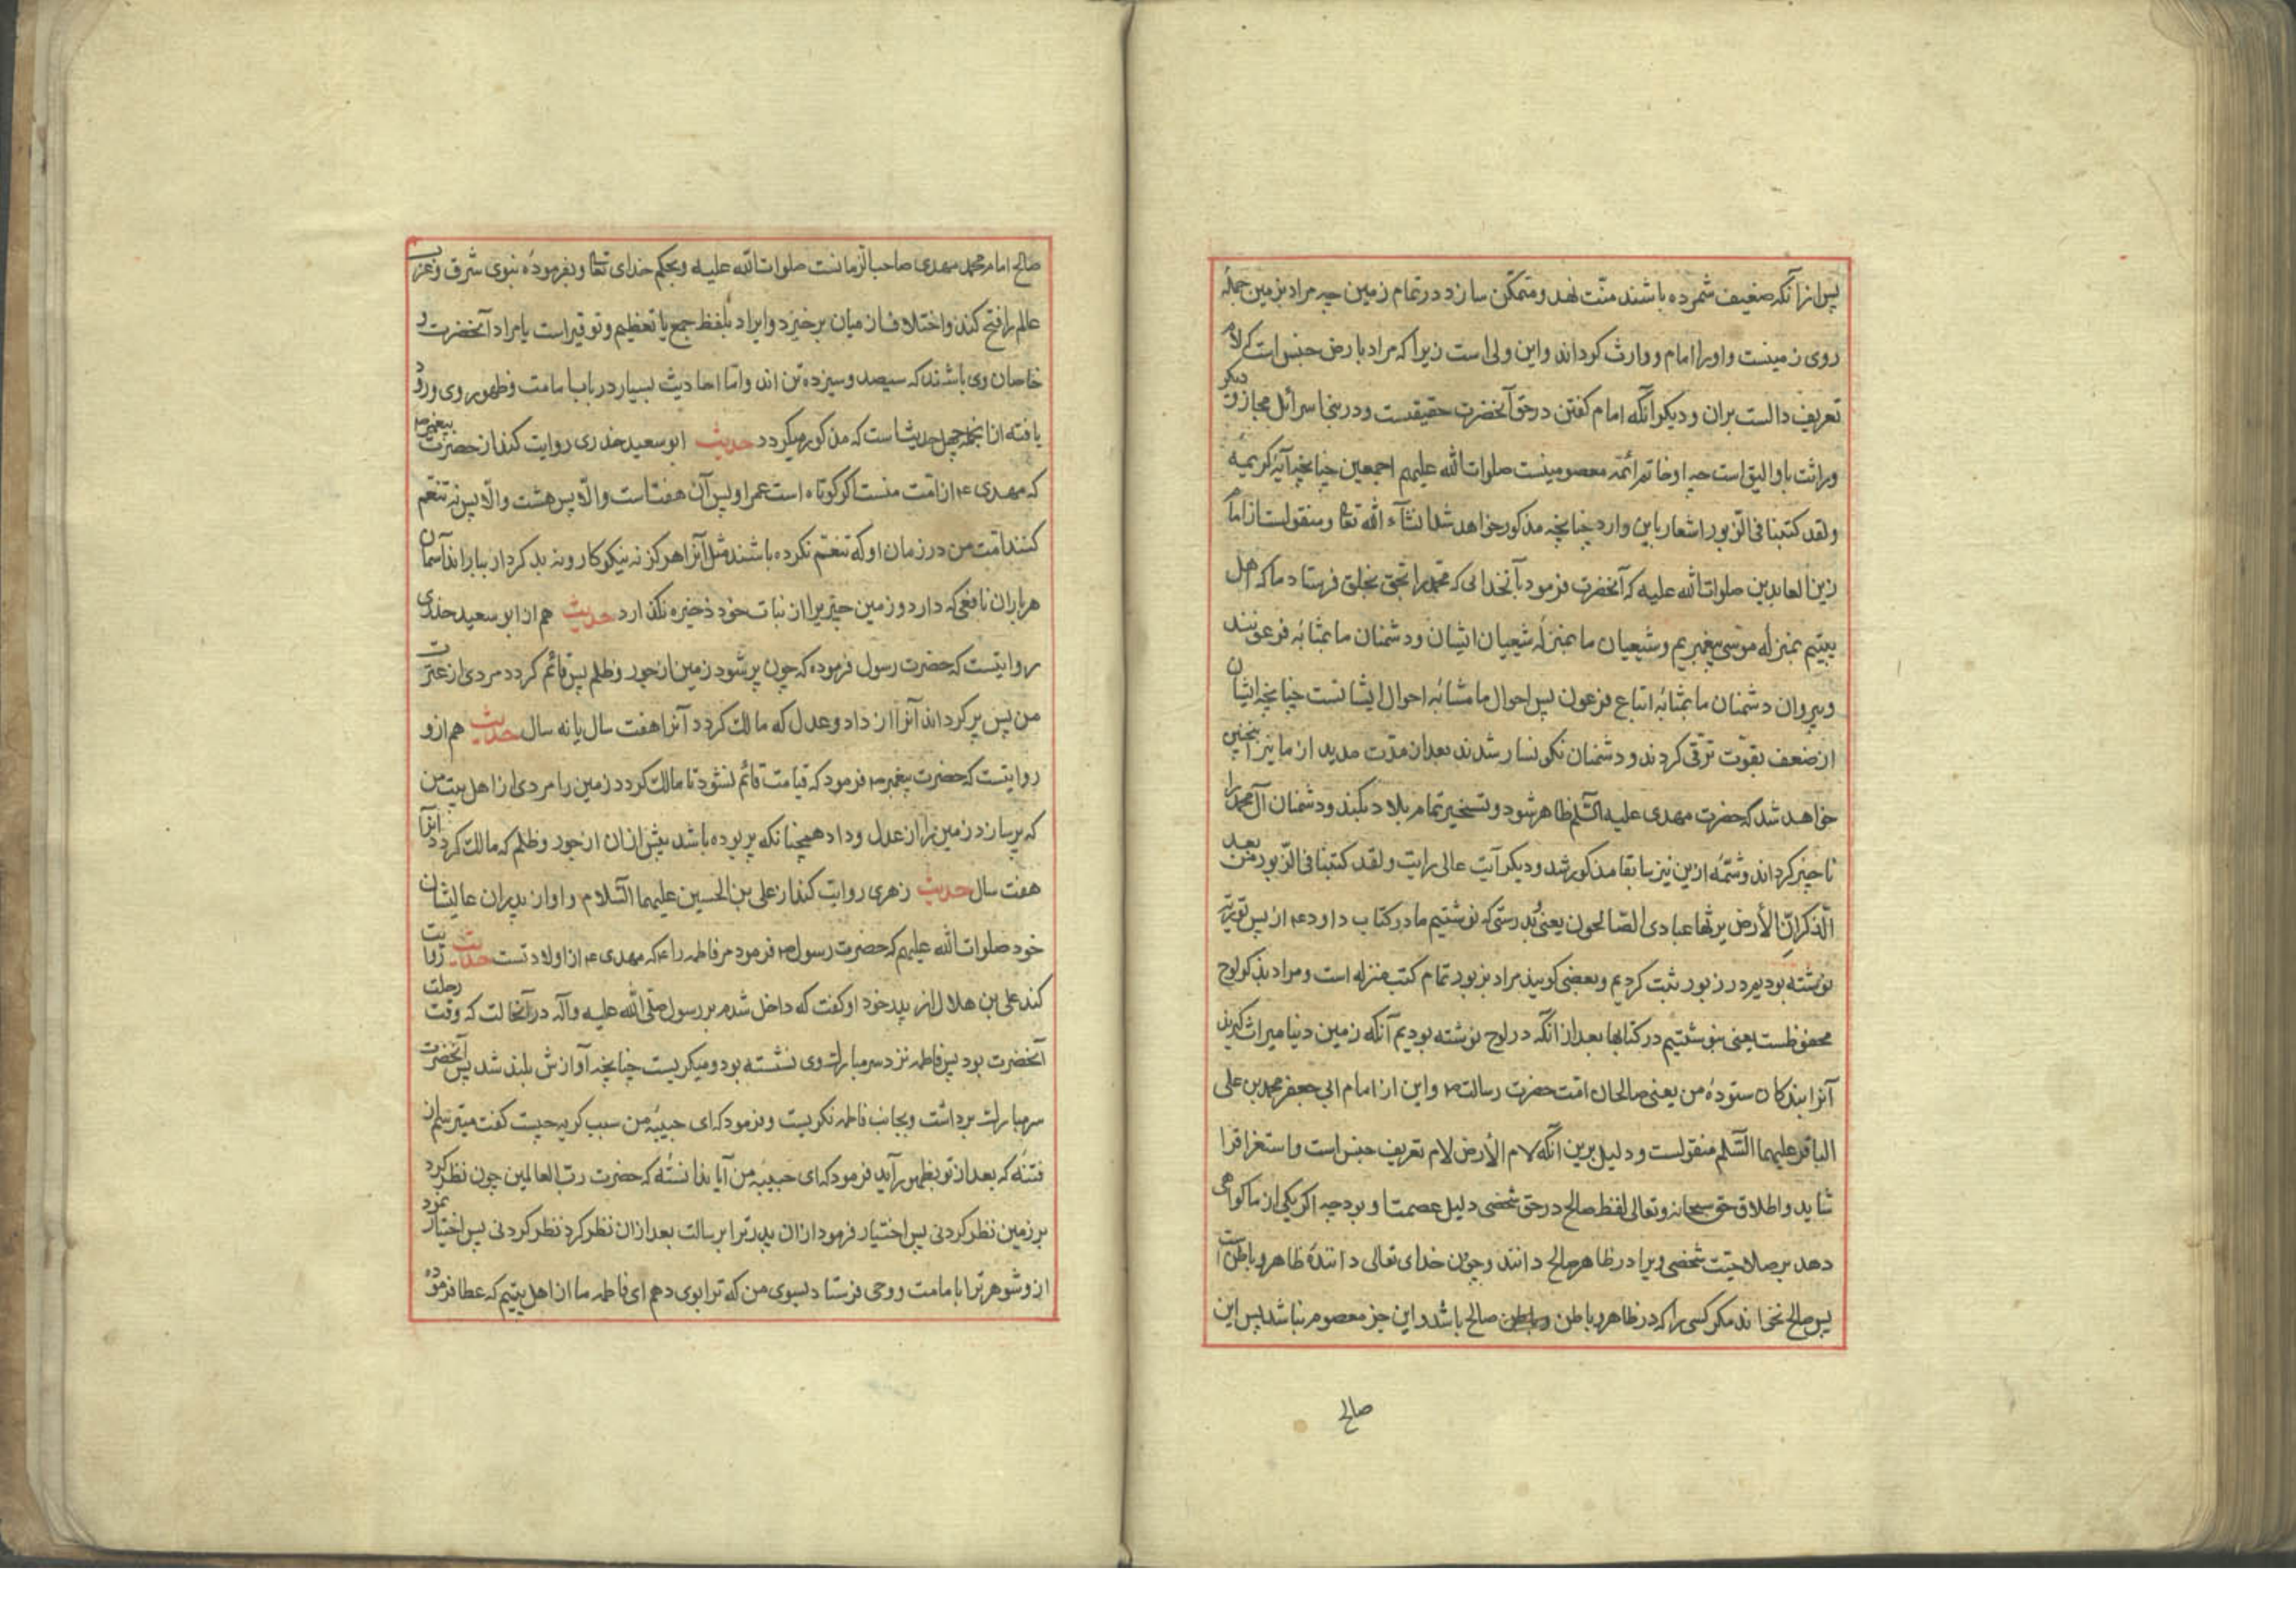 پس از آنکه ضعیف شمرده باشند منّت نهد و متمکّن سازد در تمام زمین چه مراد بزمین جملهٔ
روی زمینست و او را امام و وارث کرداند و این ولی است زیرا که مراد بارض جنس است که لام
تعریف دالست بران و دیکر آنکه امام کفتن در حق آنحضرت حقیقست و در بنی اسرائل مجاز و دیکر
وراثت باو الیق است چه او خاتم ائمّه معصومینست صلوات الله علیهم اجمعین چنانچه آیه کریمهٔ
ولقد کتبنا فی الزبور اشعار باین وارد چنانچه مذکور خواهد شد انشآء الله تعا و منقولست از امام
زین العابدین صلوات الله علیه که آنحضرت فرمود بآنخدائی که محمّد را بحق بخلق فرستاد ما که اهل
بیتیم بمنزله موسی پیغمبریم و شیعیان ما بمنزلهٔ شیعیان ایشان و دشمنان ما بمثابه فرعونند
و پیروان دشمنان ما بمثابه اتباع فرعون پس احوال ما مشابه احوال ایشانست چنانچه ایشان
از ضعف بقوّت ترقی کردند و دشمنان نکونسار شدند بعد از مدّت مدید از ما نیز اینچنین
خواهد شد که حضرت مهدی علیه السّلم ظاهر شود و تسخیر تمام بلاد بکند و دشمنان آل محمّد را
ناچیز کرداند و شمّه از این نیز سابقا مذکور شد و دیکر آیت عالی رایت ولقد کتبنا فی الزبور من بعد
الذکر انّ الأرض یرثها عبادی الصّالحون یعنی بدرستی که نوشتیم ما در کتاب داود ع از پس توریة
نوشته بودیم در زبور ثبت کردیم و بعضی کویند مراد بزبور تمام کتب منزله است و مراد بذکر لوح
محفوظست یعنی بنوشتیم در کتابها بعد از انکه در لوح نوشته بودیم آنکه زمین دنیا میراث کیرند
آنرا بندکان ستودهٔ من یعنی صالحان امّت حضرت رسالت ص و این از امام ابی جعفر محمد بن علی
الباقر علیهما السّلم منقولست و دلیل برین آنکه لام الأرض لام تعریف جنس است و استغراق را
شاید و اطلاق حق سبحانه و تعالی لفظ صالح در حق شخصی دلیل عصمتا و بر وجه اکر یکی از ما کواهی
دهد بر صلاحیّت شخصی ویرا در ظاهر صالح دانند و چون خدای تعالی دانندهٔ ظاهر و باطن است
پس صالح نخواند مکر کسی را که در ظاهر و باطن صالح باشد و این جز معصوم نباشد پس این
صالح
صالح امام محمد مهدی صاحب الزمانست صلوات الله علیه و بحکم خدای تعا و بفرمودهٔ نبوی شرق و غرب
عالم را فتح کند و اختلاف از میان برخیزد و ایراد بلفظ جمع یا تعظیم و توقیر است یا مراد آنحضرت و
خاصان وی باشند که سیصد و سیزده تن اند و امّا احادیث بسیار در باب امامت و ظهور وی ورود
یافته از انجمله چهل حدیث است که مذکور میکردد حدیث ابو سعید خدری روایت کند از حضرت پیغمبر ص
که مهدی ع از امّت منست اکر کوتاه است عمر او پس آن هفت است والّا پس هشت والّا پس نه تنعّم
کنند امّت من در زمان او که تنعّم نکرده باشند مثل آنرا هرکز نه نیکوکار و نه بد کردار بباراند آسمان
هر باران نافعی که دارد و زمین چیزیرا از نبات خود ذخیره نکذارد حدیث هم از ابو سعید خدری
روایتست که حضرت رسول فرموده که چون پر شود زمین از جور و ظلم پس قائم کردد مردی از عترت
من پس پر کرداند آنرا از داد و عدل که مالک کردد آنرا هفت سال یا نه سال حدیث هم از و
روایتست که حضرت پیغمبر ص فرمود که قیامت قائم نشود تا مالک کردد زمین را مردی از اهل بیت من
که پر سازد زمین را از عدل و داد همچنانکه پر بوده باشد پیش ازان از جور و ظلم که مالک کردد آنرا
هفت سال حدیث زهری روایت کند از علی بن الحسین علیهما السّلام و او از پدران عالیشان
خود صلوات الله علیهم که حضرت رسول ص فرمود مر فاطمه را ع که مهدی ع از اولاد تست حدیث روایت
کند علی بن هلال از پدر خود او کفت که داخل شدم بر رسول صلّی الله علیه وآله در آنحالت که وقت رحلت
آنحضرت بود پس فاطمه نزد سر مبارک وی نشسته بود و میکریست چنانچه آوازش بلند شد پس آنحضرت
سر مبارک برداشت و بجانب فاطمه نکریست و فرمود که ای حبیبه من سبب کریه چیست کفت میترسم از
فتنهٔ که بعد از تو بظهور آید فرمود که ای حبیبه من آیا ندانستهٔ که حضرت ربّ العالمین چون نظر کرد
بر زمین نظر کردنی پس اختیار فرمود ازان پدر ترا برسالت بعد ازان نظر کرد نظر کردنی پس اختیار نمود
ازو شوهر ترا بامامت و وحی فرستاد بسوی من که ترا بوی دهم ای فاطمه ما از اهل بیتیم که عطا فرموده